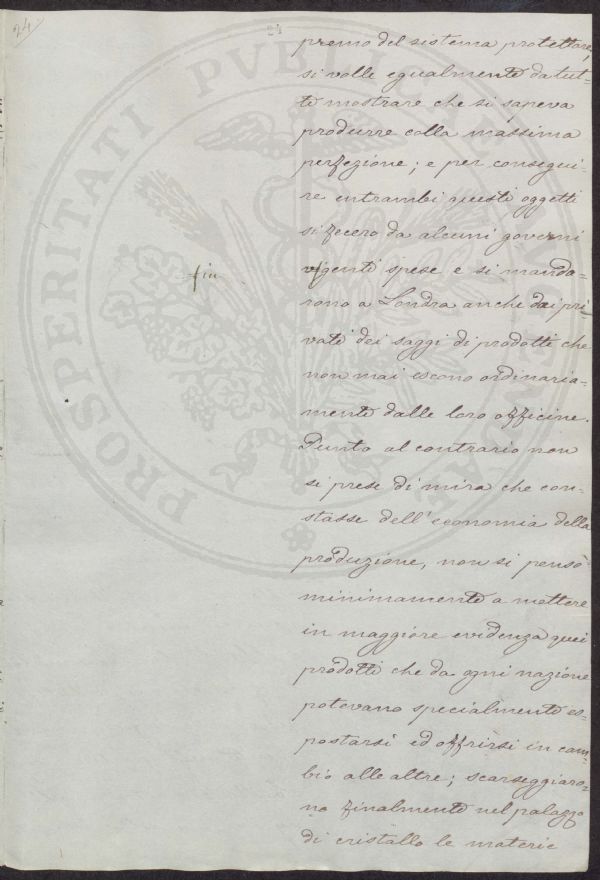 24
24
premo del sistema protettore,
si volle egualmente da tut-
ti mostrare che si sapeva
produrre colla massima
perfezione; e per consegui-
re entrambi questi oggetti
si fecero da alcuni governi
ingenti spese e si manda-
fin
rono a Londra anche dai pri-
vati dei saggi di prodotti che
non mai escono ordinaria-
mente dalle loro officine.
Punto al contrario non
si prese di mira che con-
stasse dell'economia della
produzione, non si pensò
minimamente a mettere
in maggiore evidenza quei
prodotti che da ogni nazione
potevano specialmente es-
portarsi ed offrirsi in cam-
bio alle altre; scarseggiaro-
no finalmente nel palazzo
di cristallo le materie
PROSPERITATI PUBLICAE AUGENDAE